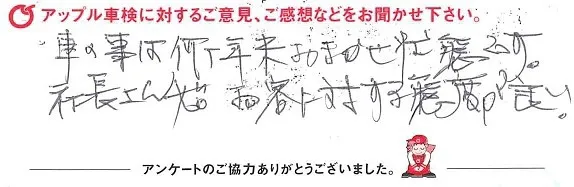 アップル車検に対するご意見、ご感想などをお聞かせ下さい。
車の事は何十年来おまかせ状態です。
社長さん始めお客に対する態度が良い。
アンケートのご協力ありがとうございました。